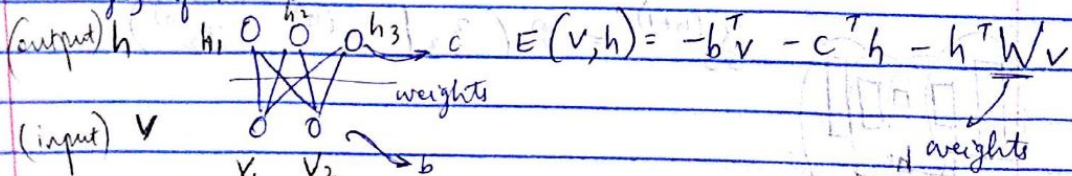 (output) h h₁ h₂ h₃ c E(v,h) = -bᵀv - cᵀh - hᵀWv
weights
(input) v weights
v₁ v₂ b